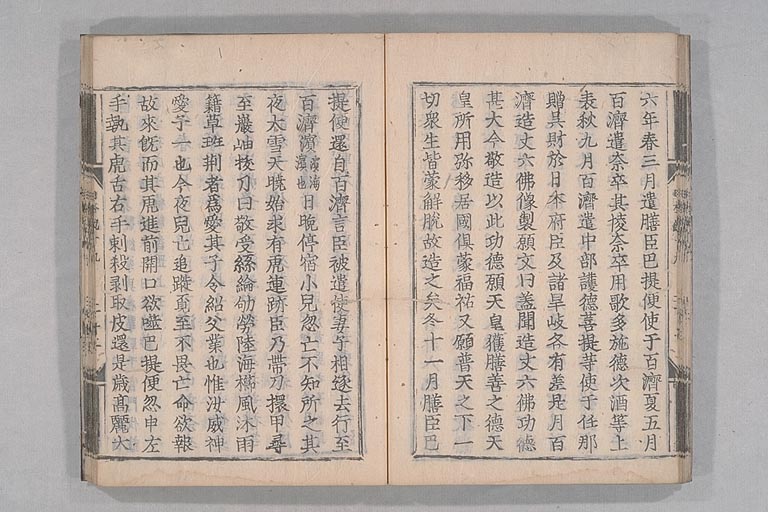 六年春三月遣膳臣巴提便使于百濟夏五月
百濟遣奈卒其㥄奈卒用歌多施德次酒等上
表秋九月百濟遣中部護德菩提等使于任那
贈吳財於日本府臣及諸旱岐各有差是月百
濟造丈六佛像製願文曰蓋聞造丈六佛功德
甚大今敬造以此功德願天皇獲勝善之德天
皇所用弥移居國俱蒙福祐又願普天之下一
切衆生皆蒙解脫故造之矣冬十一月膳臣巴
提便還自百濟言臣被遣使妻子相逐去行至
百濟濱濱海濱也日晚停宿小兒忽亡不知所之其
夜大雪天曉始求有虎連跡臣乃帶刀擐甲尋
至巖岫拔刀曰敬受絲綸劬勞陸海櫛風沐雨
籍草班荆者爲愛其子令紹父業也惟汝威神
愛子一也今夜兒亡追蹤覓至不畏亡命欲報
故來旣而其虎進前開口欲噬巴提便忽申左
手執其虎舌右手刺殺剥取皮還是歲高麗大